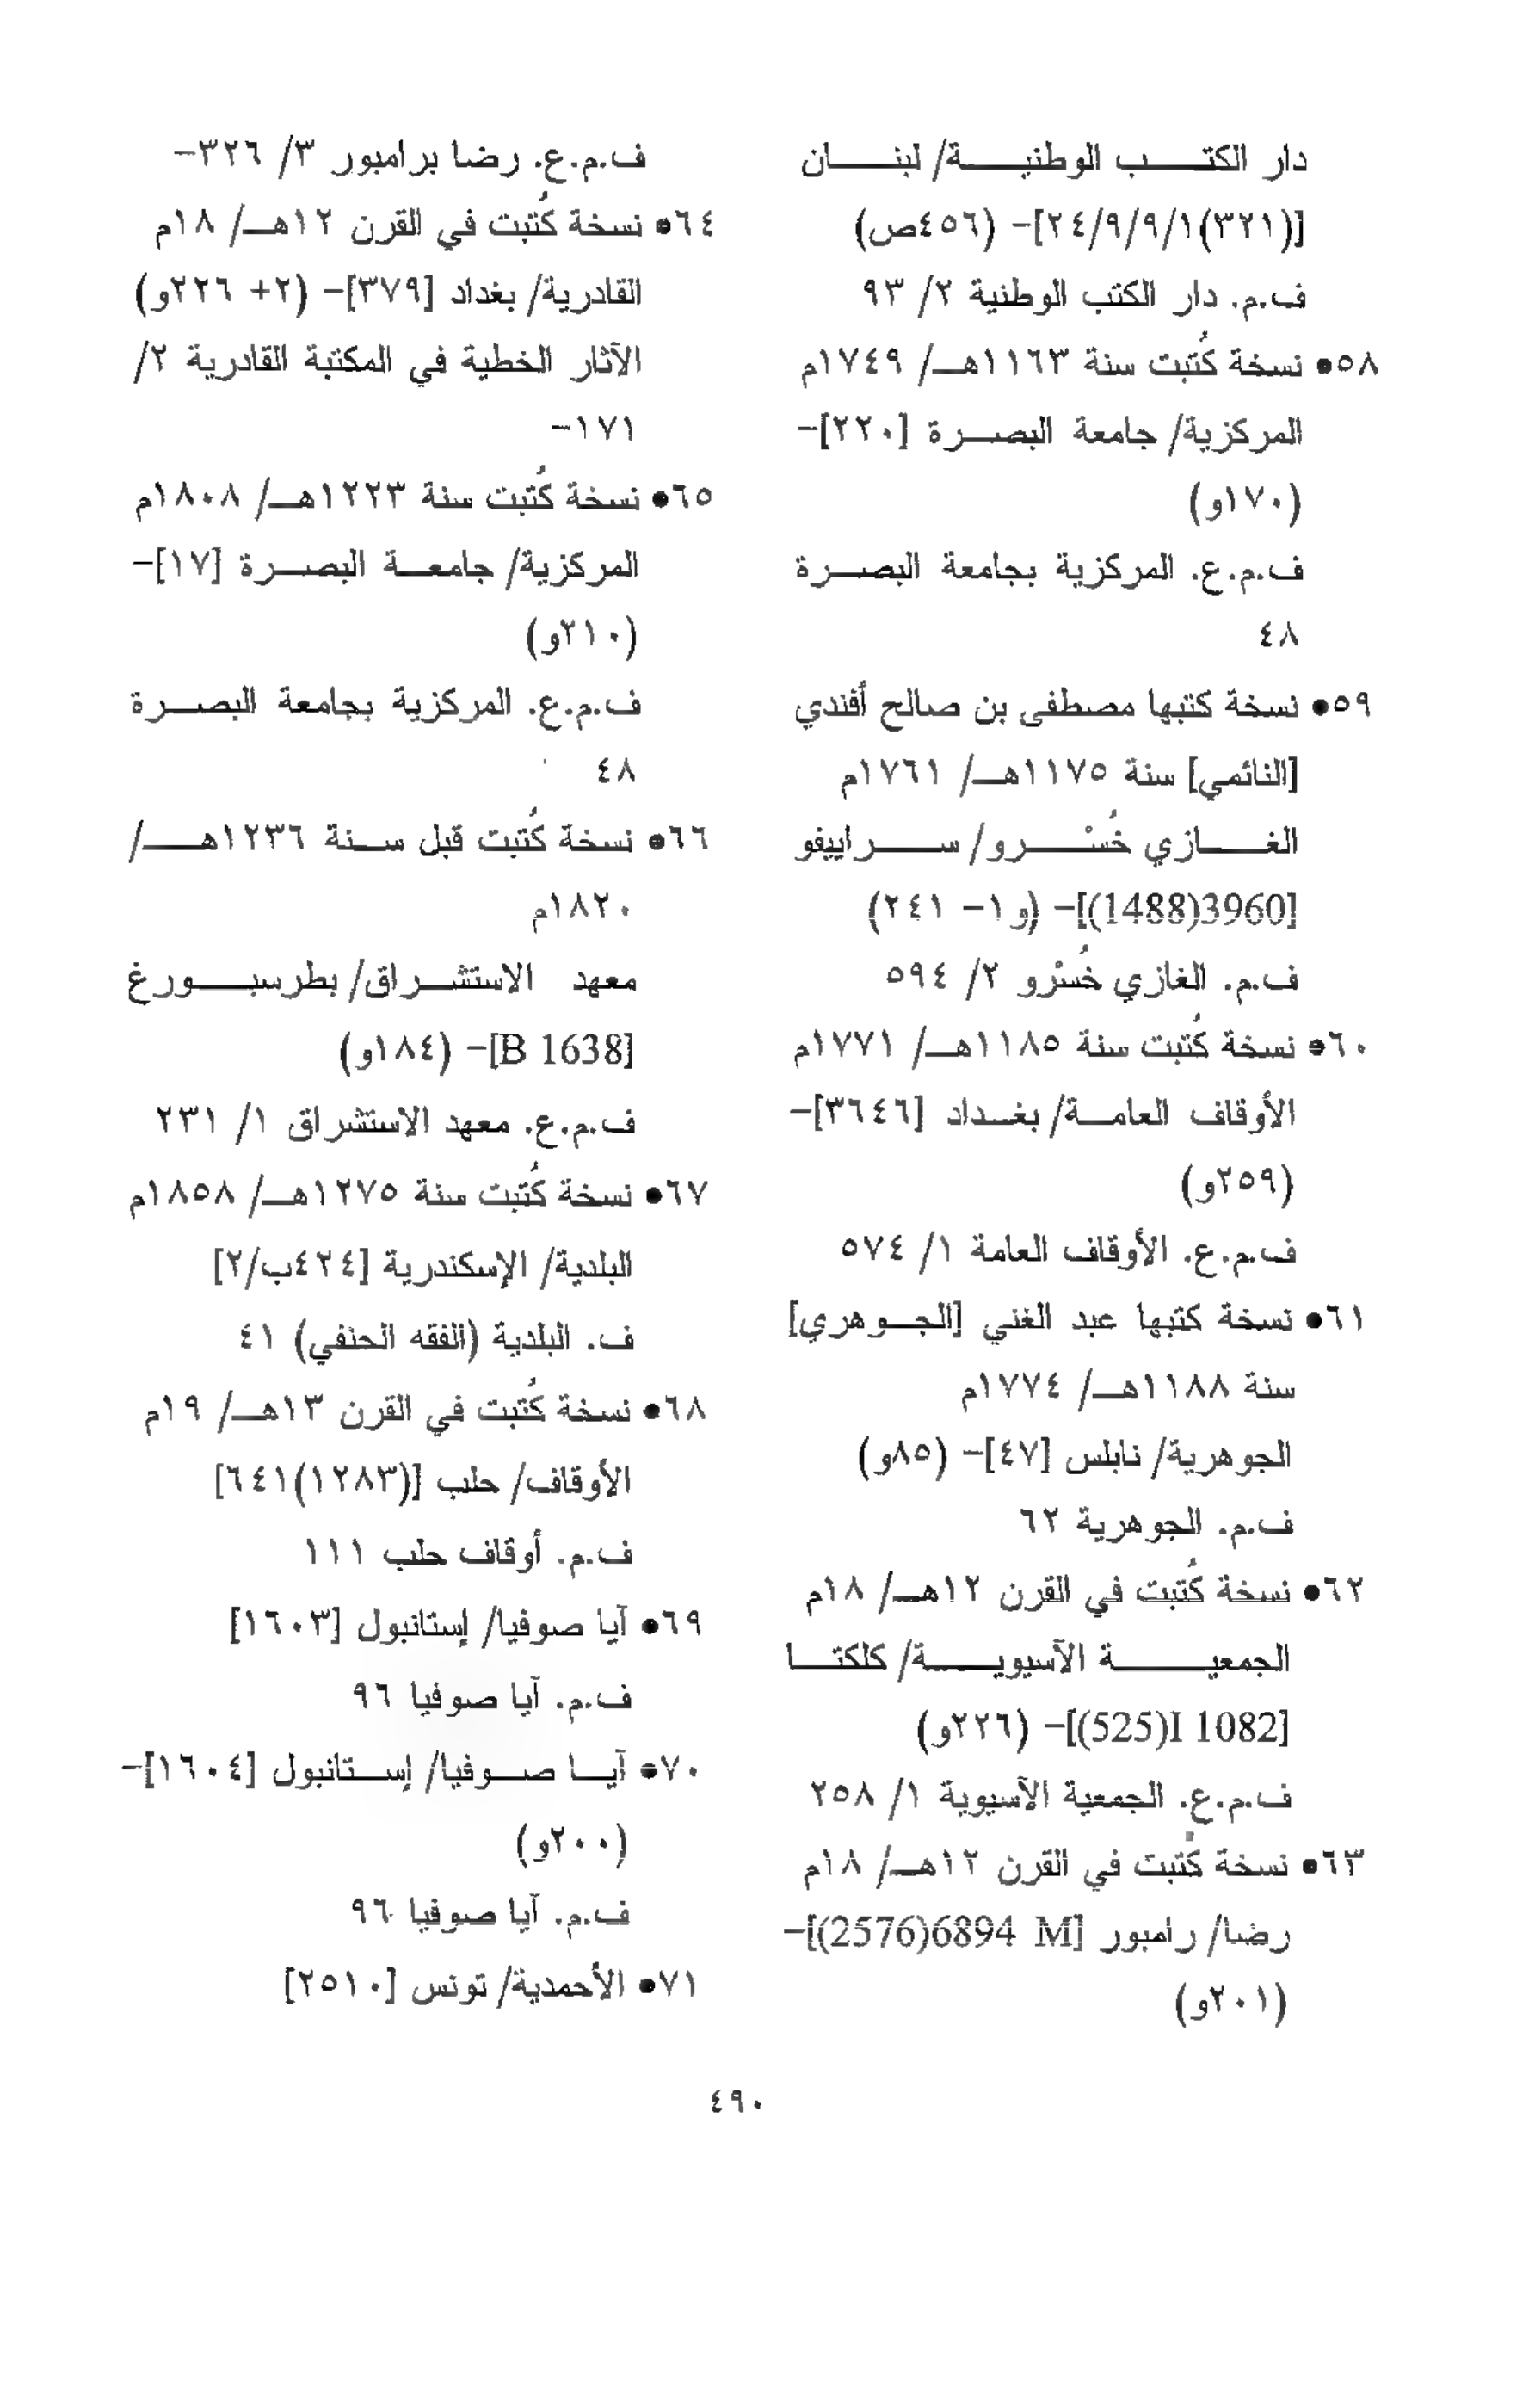 دار الكتب الوطنية/ لبنان
[(٣٢١)٢٤/٩/٩/١]- (٤٥٦ص)
ف.م. دار الكتب الوطنية ٢/ ٩٣
٥٨• نسخة كُتبت سنة ١١٦٣هـ/ ١٧٤٩م
المركزية/ جامعة البصرة [٢٢٠]-
(١٧٠و)
ف.م.ع. المركزية بجامعة البصرة
٤٨
٥٩• نسخة كتبها مصطفى بن صالح أفندي
[النائمي] سنة ١١٧٥هـ/ ١٧٦١م
الغازي خُسْرو/ سراييفو
[3960(1488)]- (و١- ٢٤١)
ف.م. الغازي خُسْرو ٢/ ٥٩٤
٦٠• نسخة كُتبت سنة ١١٨٥هـ/ ١٧٧١م
الأوقاف العامة/ بغداد [٣٦٤٦]-
(٢٥٩و)
ف.م.ع. الأوقاف العامة ١/ ٥٧٤
٦١• نسخة كتبها عبد الغني [الجوهري]
سنة ١١٨٨هـ/ ١٧٧٤م
الجوهرية/ نابلس [٤٧]- (٨٥و)
ف.م. الجوهرية ٦٢
٦٢• نسخة كُتبت في القرن ١٢هـ/ ١٨م
الجمعية الآسيوية/ كلكتا
[I 1082(525)]- (٢٢٦و)
ف.م.ع. الجمعية الآسيوية ١/ ٢٥٨
٦٣• نسخة كُتبت في القرن ١٢هـ/ ١٨م
رضا/ رامبور [6894 M(2576)]-
(٢٠١و)
ف.م.ع. رضا برامبور ٣/ ٣٢٦-
٦٤• نسخة كُتبت في القرن ١٢هـ/ ١٨م
القادرية/ بغداد [٣٧٩]- (٢+ ٢٢٦و)
الآثار الخطية في المكتبة القادرية ٢/
١٧١-
٦٥• نسخة كُتبت سنة ١٢٢٣هـ/ ١٨٠٨م
المركزية/ جامعة البصرة [١٧]-
(٢١٠و)
ف.م.ع. المركزية بجامعة البصرة
٤٨
٦٦• نسخة كُتبت قبل سنة ١٢٣٦هـ/
١٨٢٠م
معهد الاستشراق/ بطرسبورغ
[B 1638]- (١٨٤و)
ف.م.ع. معهد الاستشراق ١/ ٢٣١
٦٧• نسخة كُتبت سنة ١٢٧٥هـ/ ١٨٥٨م
البلدية/ الإسكندرية [٤٢٤ب/٢]
ف. البلدية (الفقه الحنفي) ٤١
٦٨• نسخة كُتبت في القرن ١٣هـ/ ١٩م
الأوقاف/ حلب [(١٢٨٣)٦٤١]
ف.م. أوقاف حلب ١١١
٦٩• آيا صوفيا/ إستانبول [١٦٠٣]
ف.م. آيا صوفيا ٩٦
٧٠• آيا صوفيا/ إستانبول [١٦٠٤]-
(٢٠٠و)
ف.م. آيا صوفيا ٩٦
٧١• الأحمدية/ تونس [٢٥١٠]
٤٩٠